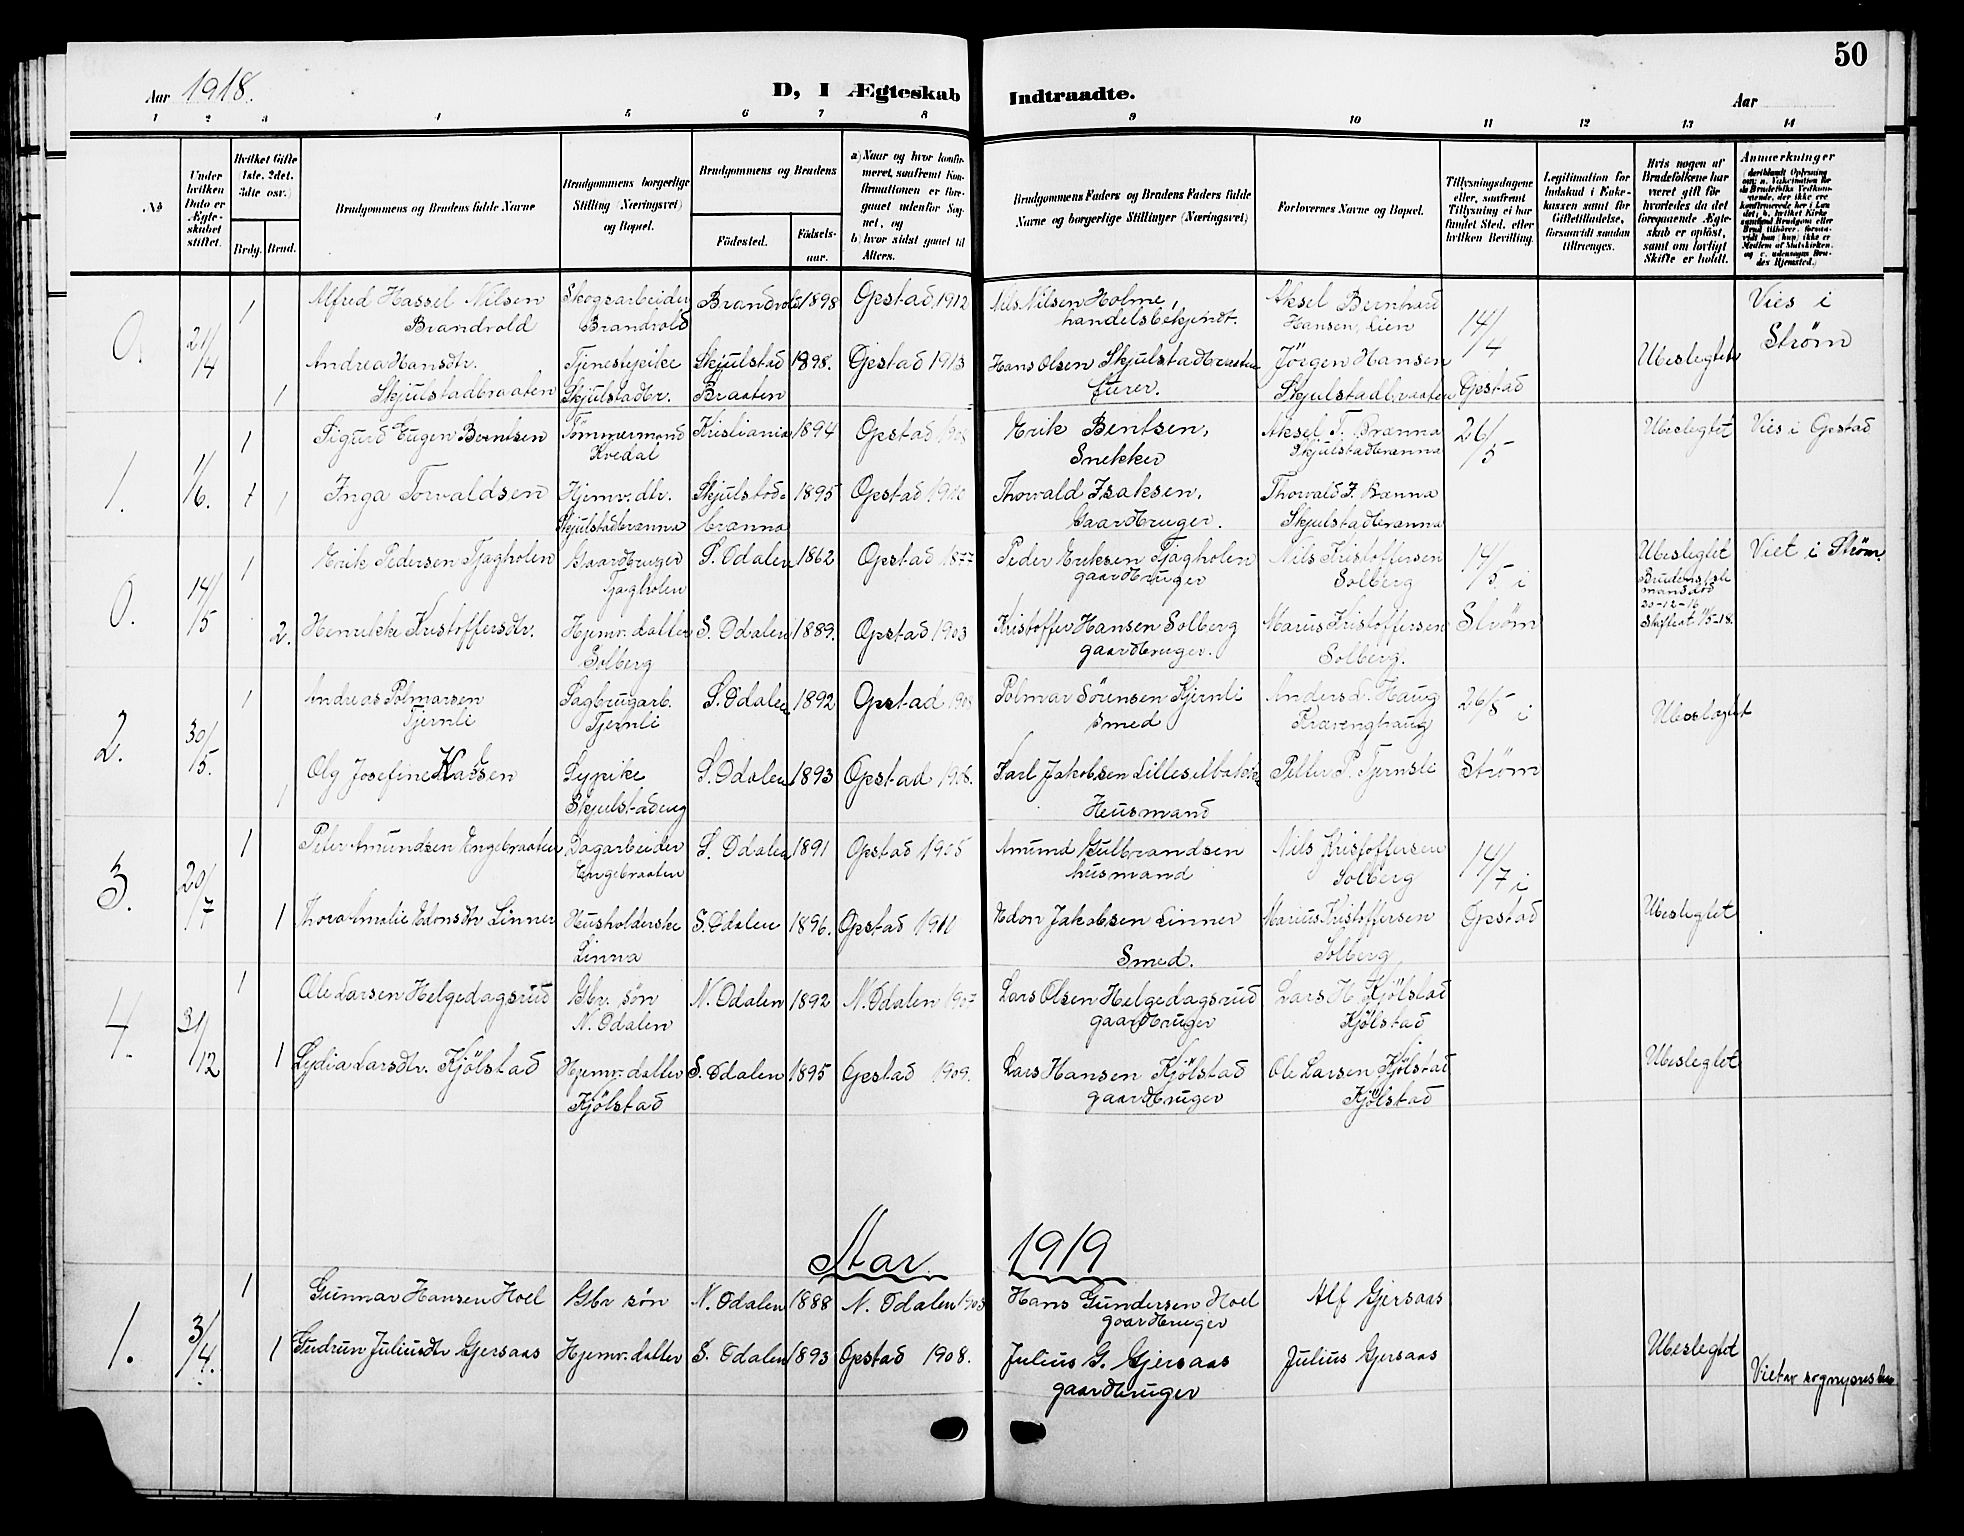 50
Aar 1918.
D, I Ægteskab Indtraadte.
Aar
1 2 3 4 5 6 7 8 9 10 11 12 13 14
No
Under hvilken Dato er Ægteskabet stiftet.
Hvilket Gifte (1ste, 2det, 3die osv.)
Brdg. Brud.
Brudgommens og Brudens fulde Navne
Brudgommens borgerlige Stilling (Næringsvei) og Bopæl.
Brudgommens og Brudens
Födested. Födselsaar.
a) Naar og hvor konfirmeret, samfremt Konfirmationen er foregaaet udenfor Sognet, og
b) hvor sidst gaaet til Alters.
Brudgommens Faders og Brudens Faders fulde Navne og borgerlige Stillinger (Næringsvei)
Forlovernes Navne og Bopæl.
Tillysningsdagene eller, saafremt Tillysning ei har fundet Sted, efter hvilken Bevilling.
Legitimation for Indskud i Enkekassen samt for Giftetilladelse, forsaavidt saadan tiltrænges.
Hvis nogen af Brudefolkene har været gift för hvorledes da det foregaaende Ægteskab er oplöst, samt om lovligt Skifte er holdt.
Anmærkninger
0. 21/4 1 Alfred Hassel Nilsen Skogsarbeider Brandvold 1898 Opstad 1912 Nils Nilsen Holme, Aksel Bernhard 14/4 Vies i
Brandvold Brandvold handelsbetjendt. Hansen, Lien Strøm
Andrea Hansdtr. Tjenestepike Skjulstad 1898. Opstad 1913 Hans Olsen Skjulstadbraaten Jörgen Hansen Ubeslegtet
1 Skjulstadbraaten Skjulstadbr. Braaten Skjulstadbraaten Opstad
1. 1/6. 1 Sigurd Eugen Berntsen Tömmermand Kristiania 1894 Opstad Erik Bentsen, Aksel T. Brænna 26/5 Ubeslegtet Vies i Opstad
Kvedal Snekker Skjulstadbrænna
1 Inga Torvaldsen Hjemv. dtr. Skjulstad- 1895 Opstad 1910 Thorvald Isaksen, Thorvald I. Brænna
Skjulstadbrænna brænna Gaardbruger. Skjulstadbrænna
0. 14/5 1 Erik Pedersen Tjagholen Gaardbruger S. Odalen 1862 Opstad 1877 Peder Eriksen Tjagholen Nils Kristoffersen 14/5 i Ubeslegtet Viet i Strøm.
Tjagholen gaardbruger Solberg Brudens 1ste
mans død
20-12-16
2. Henrikke Kristoffersdtr. Hjemv. datter S. Odalen 1889. Opstad 1903 Kristoffer Hansen Solberg Marius Kristoffersen Strøm
Solberg gaardbruger. Solberg.
2. 30/5. 1 Andreas Polmarsen Sagbrugarb. S. Odalen 1892 Opstad Polmar Sörensen Kjernli Anders L. Haug 26/5 i Ubeslegtet
Tjernli Tjernli Smed
1 Olg Josefine Karlsen Sypike S. Odalen 1893 Opstad 1908. Karl Jakobsen Petter P. Tjernsli Strøm
Skjulstadeng Husmand
3. 20/7 1 Peter Amundsen Engebraaten Dagarbeider S. Odalen 1891 Opstad 1905 Amund Gulbrandsen Nils Kristoffersen 14/7 i
Engebraaten husmand Solberg
1 Thora Amalie Edonsdtr Linner Husholderske S. Odalen 1896. Opstad 1910 Edon Jakobsen Linner Marius Kristoffersen Opstad Ubeslegtet
Linna Smed. Solberg
4. 31/12 1 Ole Larsen Helgedagsrud Gbr. søn N. Odalen 1892 N. Odalen 1907 Lars Olsen Helgedagsrud Lars H. Kjölstad
N. Odalen gaardbruger Kjölstad
1 Lydia Larsdtr. Kjölstad Hjemv. datter S. Odalen 1895 Opstad 1909. Lars Hansen Kjölstad Ole Larsen Kjölstad Ubeslegtet
Kjölstad gaardbruger Kjölstad
Aar 1919
1. 3/4. 1 Gunnar Hansen Hoel Gbr søn N. Odalen 1888 N. Odalen 1903 Hans Gundersen Hoel Alf Gjersaas
gaardbruger
1 Gudrun Juliusdtr Gjersaas Hjemv. datter S. Odalen 1893 Opstad 1908. Julius G. Gjersaas Julius Gjersaas Ubeslegtet
gaardbruger Viet av sogneprsten